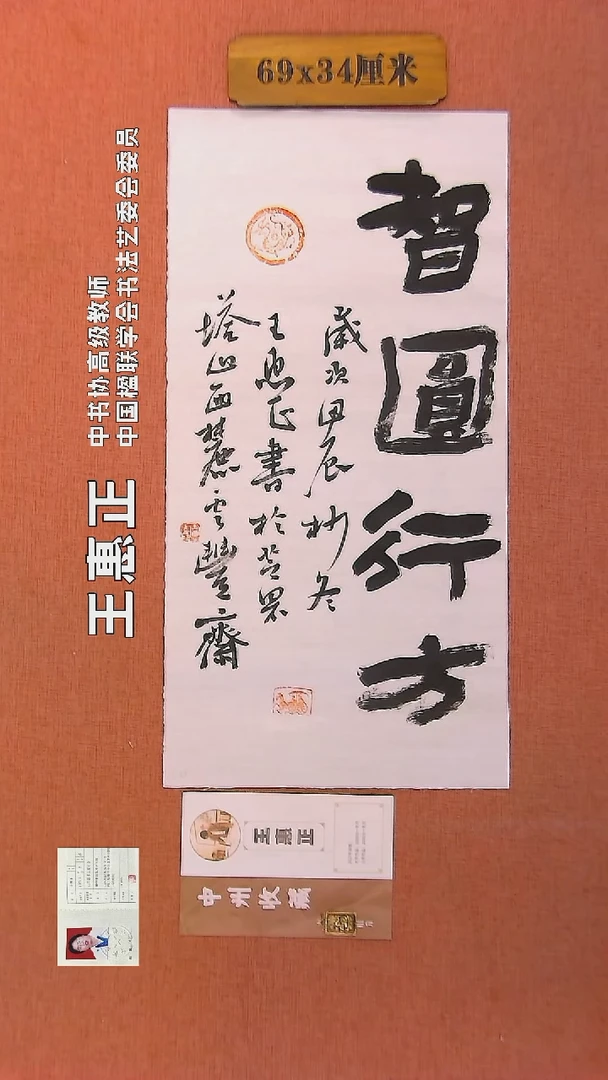 69x34厘米
智圓行方
歲次甲辰杪冬
王惠正書於登眾
塔山西麓雲豐齋
中书协高级教师
中国楹联学会书法艺委会委员
王惠正
王惠正
中州收藏